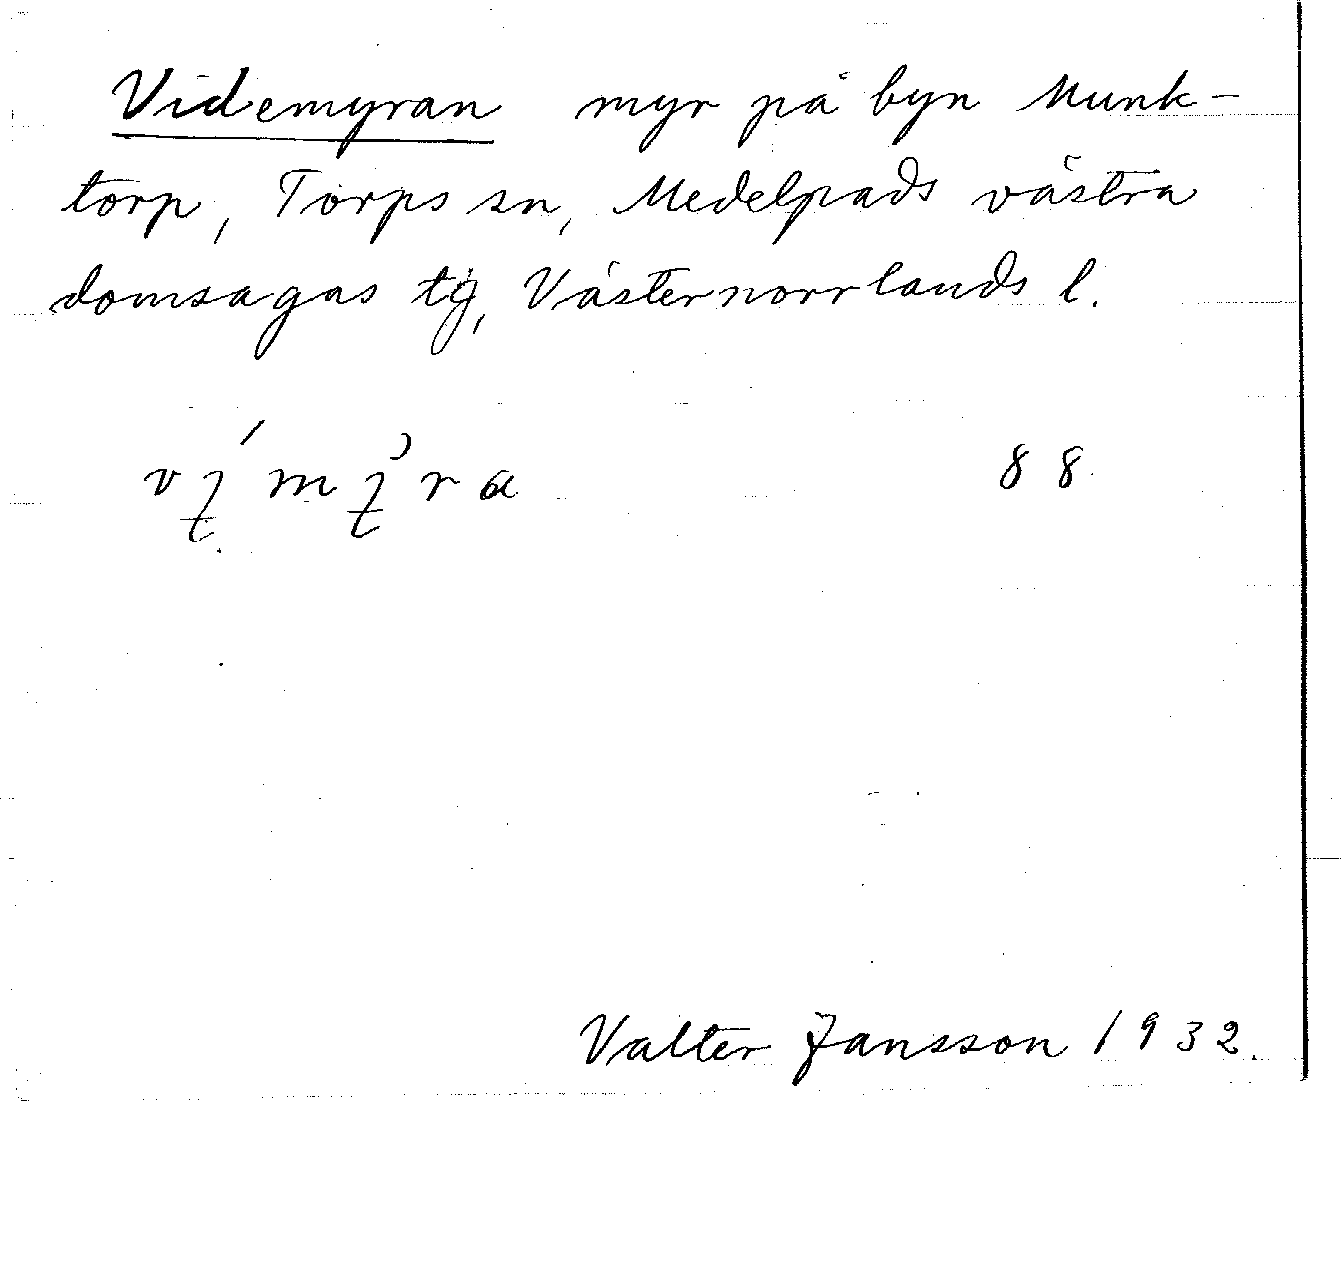 Videmyran myr på byn Munk-
torp, Torps sn, Medelpads västra
domsagas tg, Västernorrlands l.
88
Valter Jansson 1932.